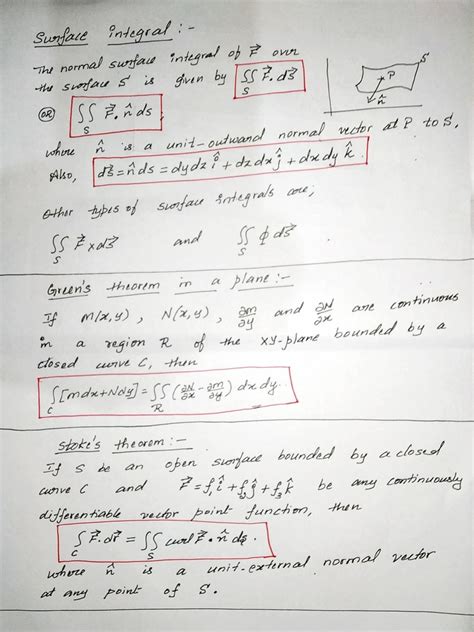 Surface integral :-
The normal surface integral of F⃗ over
the surface S is given by ∬_S F⃗ . ds⃗
S
P
n̂
(OR) ∬_S F⃗ . n̂ ds,
where n̂ is a unit-outward normal vector at P to S,
Also, ds⃗ = n̂ ds = dydz î + dzdx ĵ + dxdy k̂.
Other types of surface integrals are,
∬_S F⃗ x ds⃗ and ∬_S ϕ ds⃗
Green's theorem in a plane :-
If M(x,y), N(x,y), ∂M/∂y and ∂N/∂x are continuous
in a region R of the XY-plane bounded by a
closed curve C, then
∫_C [Mdx+Ndy] = ∬_R (∂N/∂x - ∂M/∂y) dx dy.
Stoke's theorem :-
If S be an open surface bounded by a closed
curve C and F⃗ = f₁ î + f₂ ĵ + f₃ k̂ be any continuously
differentiable vector point function, then
∫_C F⃗ . dr⃗ = ∬_S curl F⃗ . n̂ ds.
where n̂ is a unit-external normal vector
at any point of S.